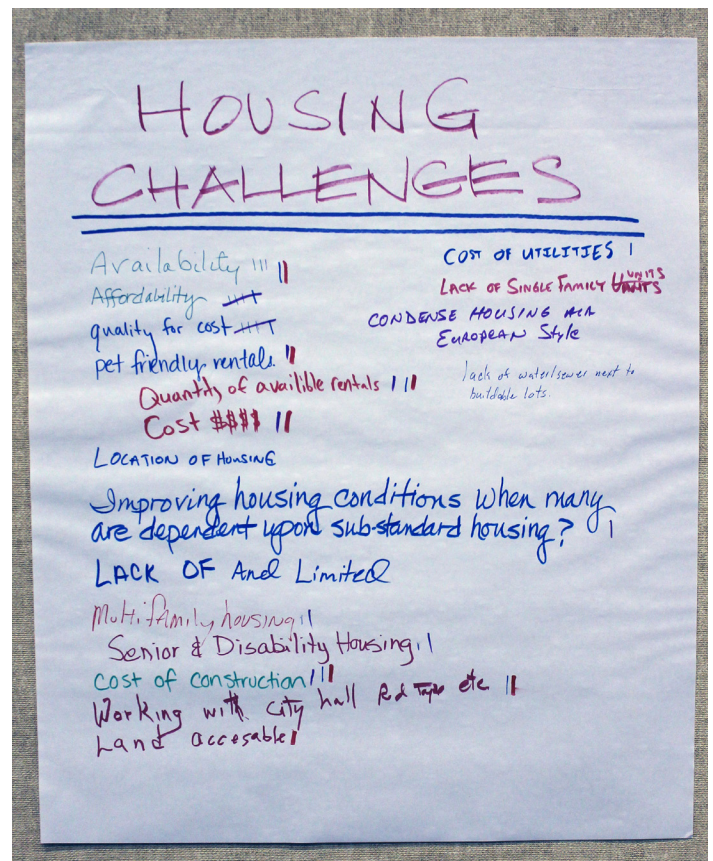 HOUSING
CHALLENGES
Availability ||| ||
Affordability 卌
quality for cost 卌
pet friendly rentals. ||
Quantity of availible rentals | | ||
Cost $$$$ | ||
LOCATION OF HOUSING
Improving housing conditions when many
are dependent upon sub-standard housing? |
LACK OF And Limited
Multifamily housing ||
Senior & Disability Housing ||
Cost of construction | | ||
Working with City hall Rd Tape etc ||
Land accesable |
COST OF UTILITIES |
LACK OF SINGLE FAMILY UNITS
CONDENSE HOUSING
EUROPEAN Style
lack of water/sewer next to
buildable lots.